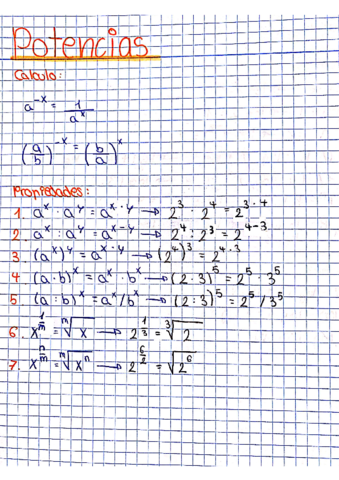 Potencias
Cálculo:
a^-x = 1/a^x
(a/b)^-x = (b/a)^x
Propiedades:
1. a^x · a^y = a^x·y → 2^3 · 2^4 = 2^3·4
2. a^x : a^y = a^x-y → 2^4 : 2^3 = 2^4-3
3. (a^x)^y = a^x·y → (2^4)^3 = 2^4·3
4 (a·b)^x = a^x · b^x → (2·3)^5 = 2^5 · 3^5
5. (a:b)^x = a^x/b^x → (2:3)^5 = 2^5/3^5
6. x^1/m = ᵐ√x → 2^1/3 = ³√2
7. x^n/m = ᵐ√x^n → 2^6/2 = √2^6